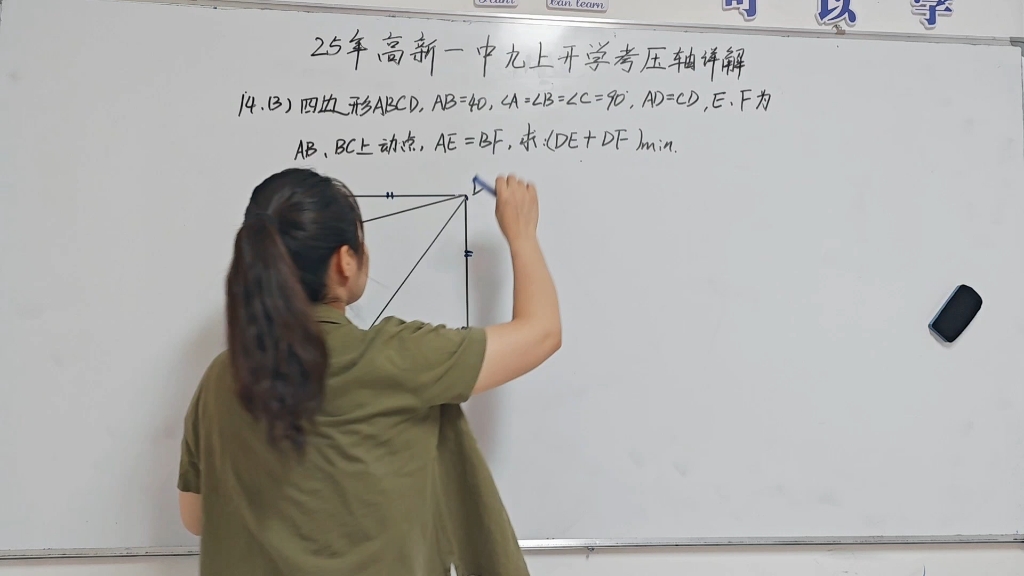 can learn
可以学
25年高新一中九上开学考压轴详解
14.(3) 四边形ABCD, AB=40, ∠A=∠B=∠C=90°, AD=CD, E、F为
AB、BC上动点, AE=BF, 求:(DE+DF)min.
D